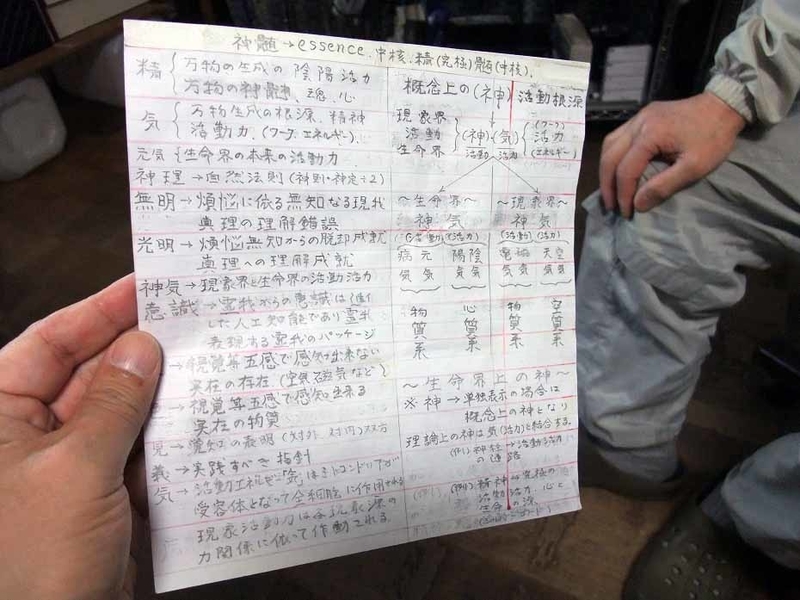 神髄→essence.中核.精(究極)髄(中核).
精{万物の生成の陰陽活力
万物の神髄、魂、心
気{万物生成の根源、精神
活動力、(ワーク、エネルギー)
元気{生命界の本来の活動力
神理→自然法則(神則・神定
無明→煩悩に依る無知なる現我
真理の理解錯誤
光明→煩悩無知からの脱却成就
真理への理解成就
神気→現象界と生命界の活動活力
意識→霊我からの意識は
した人工知能であり
表現する霊我のパッケージ
→視覚等五感で感知出来ない
実在の存在(空気磁気など)
→視覚等五感で感知出来る
実在の物質
(対外、対内)双方
義→実践すべき指針
気→活動エネルギー「気」はミトコンドリアが
受容体となって全細胞に作用
現象活動力は
力関係に依って作動される
概念上の(神)活動根源
現象界
活動
生命界
(神)(気)
活動 活力
(ワーク)
活力
(エネルギー)
〜生命界〜
神気
(活動)(活力)
病気 元気 陽気 陰気
物質系 心質系
〜現象界〜
神気
(活動)(活力)
電気 磁気 天気 空気
物質系 空質系
〜生命界上の神〜
※神→単独表示の場合は
概念上の神となり
理論上の神は気(活力)と結合する。
(例)神経→活動活力
の通路
(例)精神→究極の
活動活力、心と
生命の源